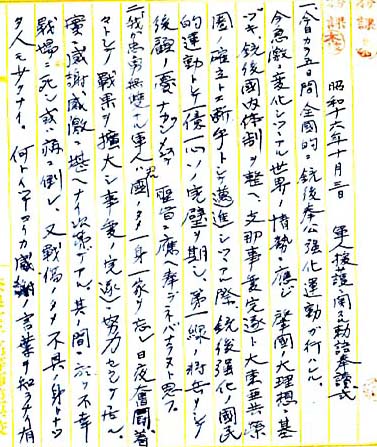 昭和十六年十月三日 軍人援護ニ関スル勅語奉読式
一、今日カラ五日間全国的ニ銃後奉公強化運動ガ行ハレル
今急激ニ変化シツヽアル世界ノ情勢ニ応ジ肇国ノ大理想ニ基
ヅキ、銃後国内体制ヲ整ヘ、支那事変完遂ト大東亜共栄
圏確立トニ断乎トシテ邁進シツヽアル際、銃後強化ノ国民
的運動トシテ一億一心ノ完璧ヲ期シ、第一線ノ将士ヲシテ
後顧ノ憂ナカラシメ
聖旨ニ応ヘ奉ラネバナラヌト思フ
二、我ガ忠勇無双ナル軍人ハ国ノタメ一身一家ヲ忘レ日夜奮闘着
々トシテ戦果ヲ拡大シ事変完遂ニ努力セラレテ居ル
実ニ感謝感激ニ堪ヘナイ次第デアル。其ノ間ニ於テ不幸
戦場ニ死シ或ハ病ニ倒レ又戦傷ノタメ不具ノ身トナツ
タ人モ少クナイ。何トイツテヨイカ感謝ノ言葉ヲ知ラナイ有